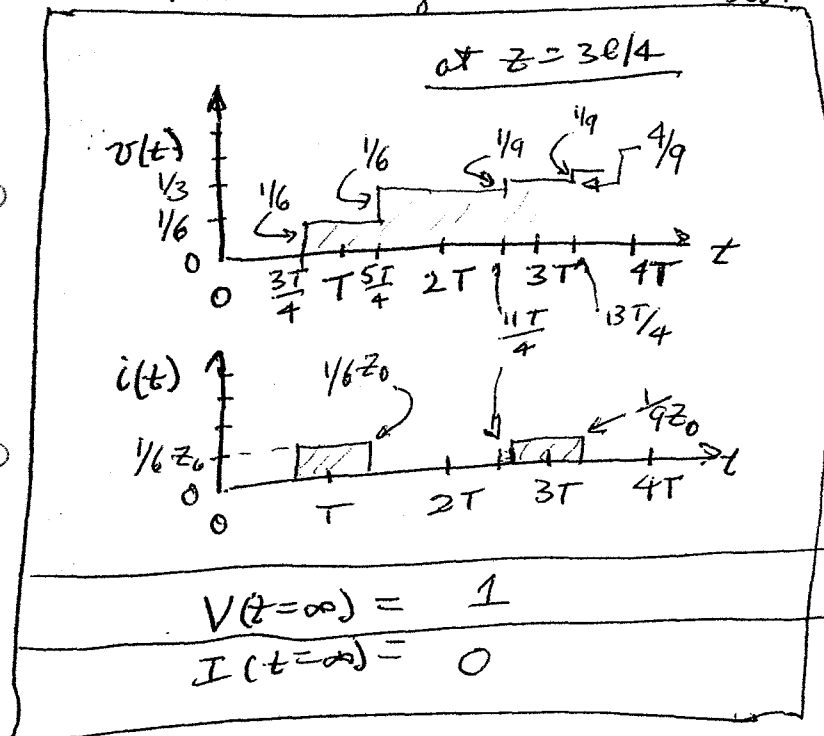 at z = 3ℓ/4
v(t)
1/6
1/6
1/9
1/9
4/9
1/3
1/6
0
0
3T/4
T
5T/4
2T
3T
4T
t
11T/4
13T/4
i(t)
1/6 Z₀
1/9 Z₀
1/6 Z₀
0
0
T
2T
3T
4T
t
V(t=∞) = 1
I(t=∞) = 0